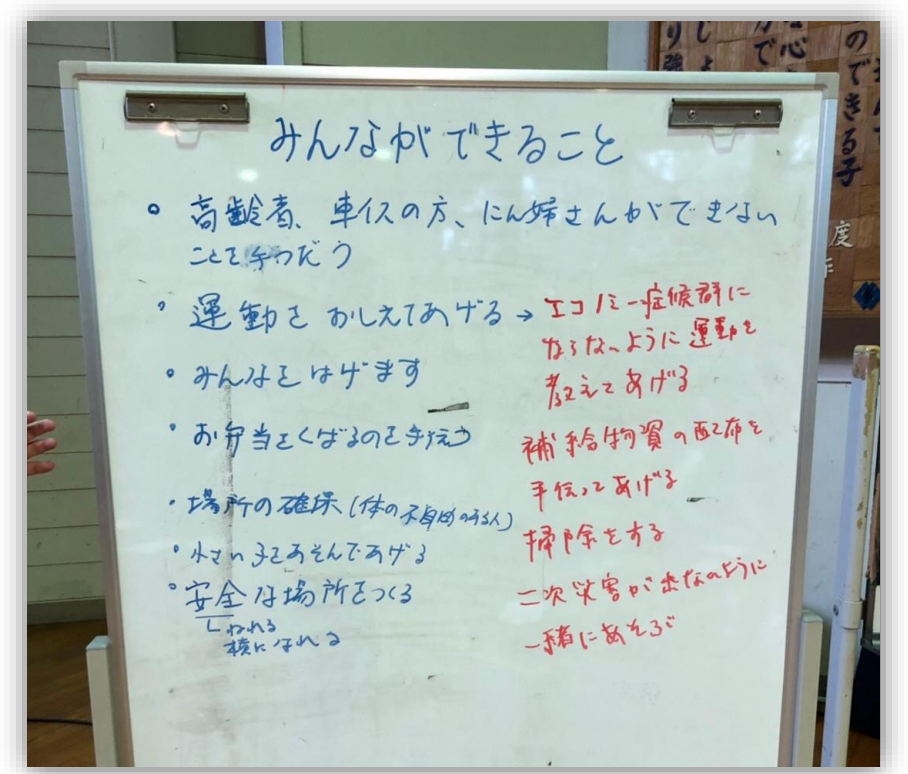 みんなができること
。高齢者、車イスの方、にん婦さんができない
ことを手つだう
。運動をおしえてあげる→
エコノミー症候群に
ならないように運動を
教えてあげる
。みんなをはげます
・お弁当をくばるのを手伝う
補給物資の配布を
手伝ってあげる
・場所の確保(体の不自由のある人)
掃除をする
・小さい子とあそんであげる
。安全な場所をつくる
ねれる
横になれる
二次災害が出ないように
一緒にあそぶ
のできる子
度